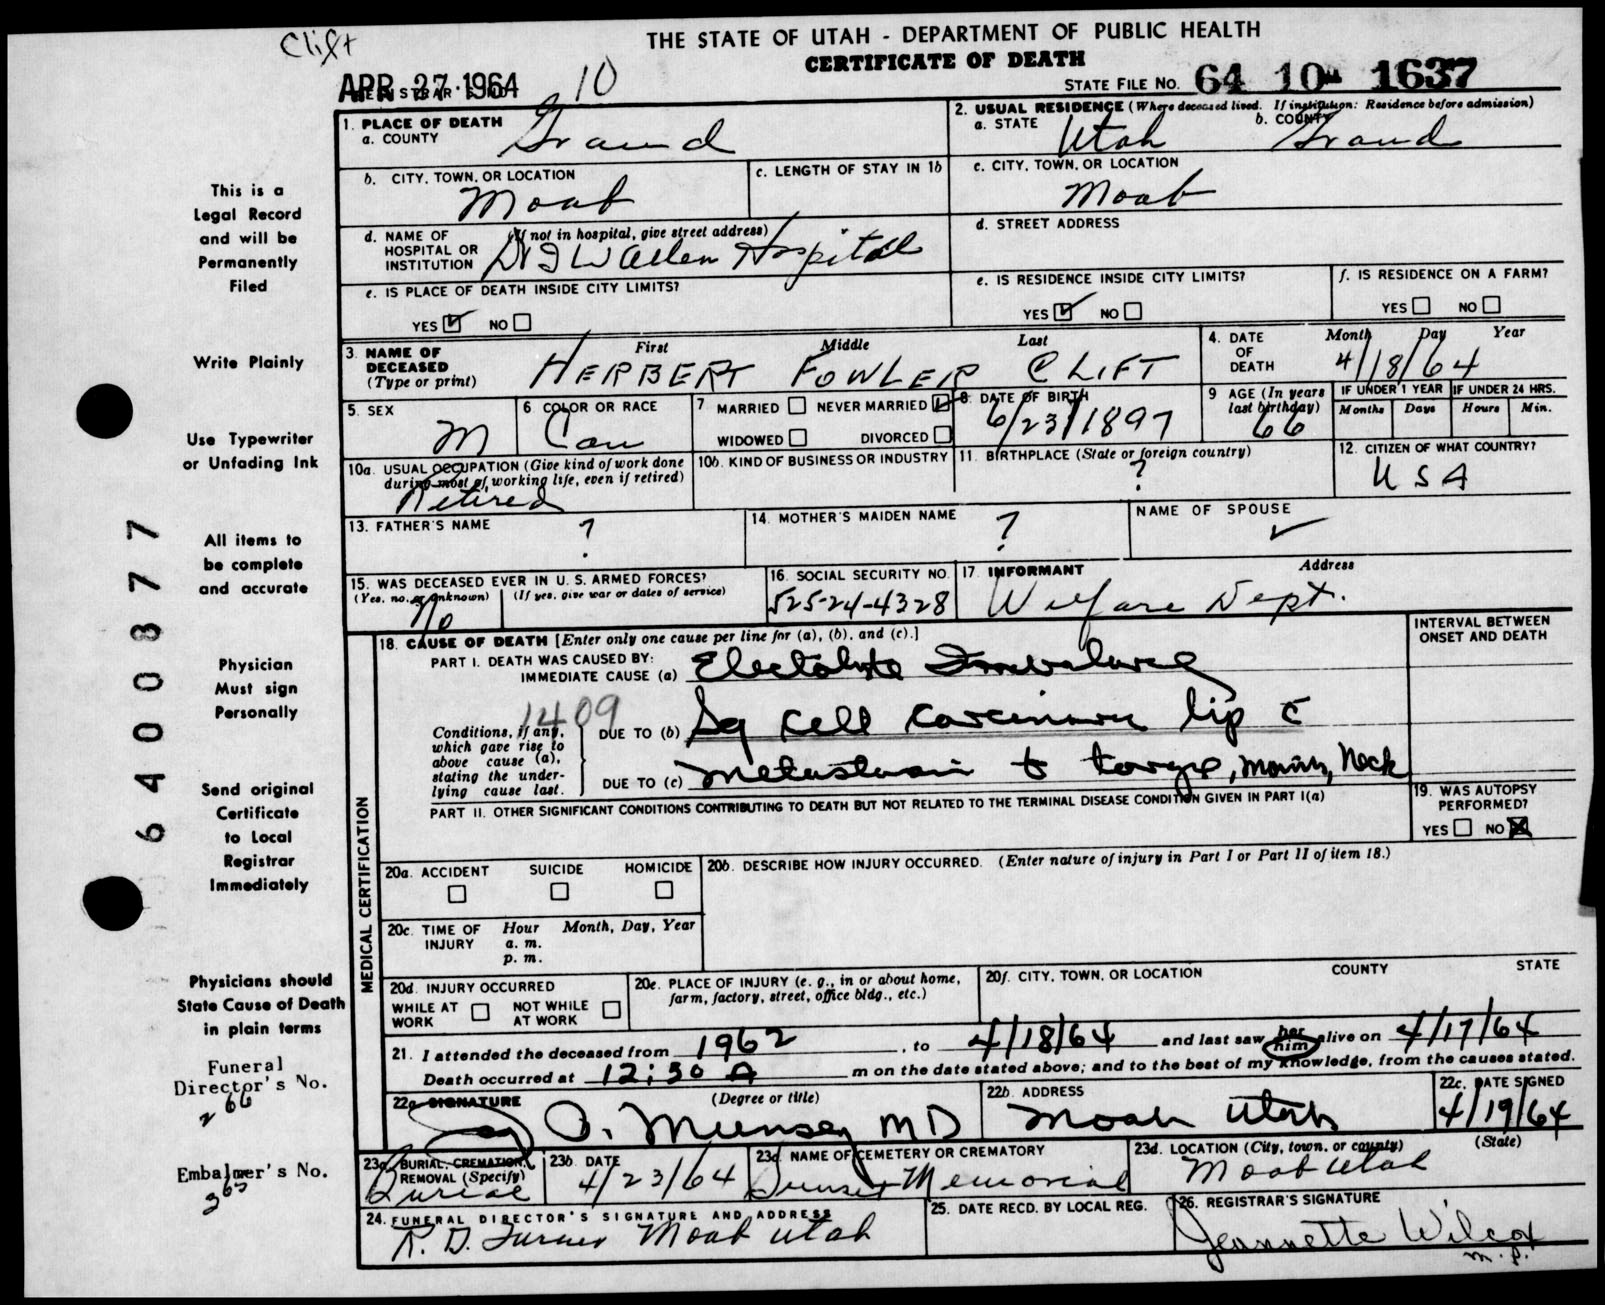 Clift
THE STATE OF UTAH - DEPARTMENT OF PUBLIC HEALTH
CERTIFICATE OF DEATH
APR 27 1964 10
STATE FILE NO. 64 10 1637
1. PLACE OF DEATH
a. COUNTY Grand
2. USUAL RESIDENCE (Where deceased lived. If institution: Residence before admission)
a. STATE Utah b. COUNTY Grand
b. CITY, TOWN, OR LOCATION Moab
c. LENGTH OF STAY IN 1b
c. CITY, TOWN, OR LOCATION Moab
d. NAME OF HOSPITAL OR INSTITUTION (If not in hospital, give street address) Allen Hospital
d. STREET ADDRESS
e. IS PLACE OF DEATH INSIDE CITY LIMITS?
YES NO
e. IS RESIDENCE INSIDE CITY LIMITS?
YES NO
f. IS RESIDENCE ON A FARM?
YES NO
3. NAME OF DECEASED (Type or print)
First Middle Last
HERBERT FOWLER CLIFT
4. DATE OF DEATH Month Day Year
4/18/64
5. SEX M
6 COLOR OR RACE Cau
7 MARRIED NEVER MARRIED
WIDOWED DIVORCED
8. DATE OF BIRTH 6/23/1897
9 AGE (In years last birthday) 66
IF UNDER 1 YEAR Months Days
IF UNDER 24 HRS. Hours Min.
10a. USUAL OCCUPATION (Give kind of work done during most of working life, even if retired) Retired
10b. KIND OF BUSINESS OR INDUSTRY
11. BIRTHPLACE (State or foreign country) ?
12. CITIZEN OF WHAT COUNTRY? USA
13. FATHER'S NAME ?
14. MOTHER'S MAIDEN NAME ?
NAME OF SPOUSE
15. WAS DECEASED EVER IN U. S. ARMED FORCES?
(Yes, no, or unknown) (If yes, give war or dates of service)
No
16. SOCIAL SECURITY NO. 525-24-4328
17. INFORMANT Address
Welfare Dept.
MEDICAL CERTIFICATION
18. CAUSE OF DEATH [Enter only one cause per line for (a), (b), and (c).]
INTERVAL BETWEEN ONSET AND DEATH
PART I. DEATH WAS CAUSED BY:
IMMEDIATE CAUSE (a) Electolyte Imbalance
1409
Conditions, if any, which gave rise to above cause (a), stating the underlying cause last.
DUE TO (b) Sq cell carcinoma lip c̄
DUE TO (c) metastasis to tongue, Neck
PART II. OTHER SIGNIFICANT CONDITIONS CONTRIBUTING TO DEATH BUT NOT RELATED TO THE TERMINAL DISEASE CONDITION GIVEN IN PART I(a)
19. WAS AUTOPSY PERFORMED?
YES NO
20a. ACCIDENT SUICIDE HOMICIDE
20b. DESCRIBE HOW INJURY OCCURRED. (Enter nature of injury in Part I or Part II of item 18.)
20c. TIME OF INJURY Hour a. m. p. m. Month, Day, Year
20d. INJURY OCCURRED
WHILE AT WORK NOT WHILE AT WORK
20e. PLACE OF INJURY (e. g., in or about home, farm, factory, street, office bldg., etc.)
20f. CITY, TOWN, OR LOCATION COUNTY STATE
21. I attended the deceased from 1962, to 4/18/64 and last saw her him alive on 4/17/64
Death occurred at 12:30 A m on the date stated above; and to the best of my knowledge, from the causes stated.
22a. SIGNATURE (Degree or title)
Munsey MD
22b. ADDRESS Moab Utah
22c. DATE SIGNED 4/19/64
23a. BURIAL, CREMATION, REMOVAL (Specify) Burial
23b. DATE 4/23/64
23c. NAME OF CEMETERY OR CREMATORY Sunset Memorial
23d. LOCATION (City, town, or county) (State)
Moab Utah
24. FUNERAL DIRECTOR'S SIGNATURE AND ADDRESS
R. D. Turner Moab Utah
25. DATE RECD. BY LOCAL REG.
26. REGISTRAR'S SIGNATURE
Jeannette Wilcox
m.p.
This is a
Legal Record
and will be
Permanently
Filed
Write Plainly
Use Typewriter
or Unfading Ink
All items to
be complete
and accurate
Physician
Must sign
Personally
Send original
Certificate
to Local
Registrar
Immediately
Physicians should
State Cause of Death
in plain terms
Funeral
Director's No.
266
Embalmer's No.
365
6400877